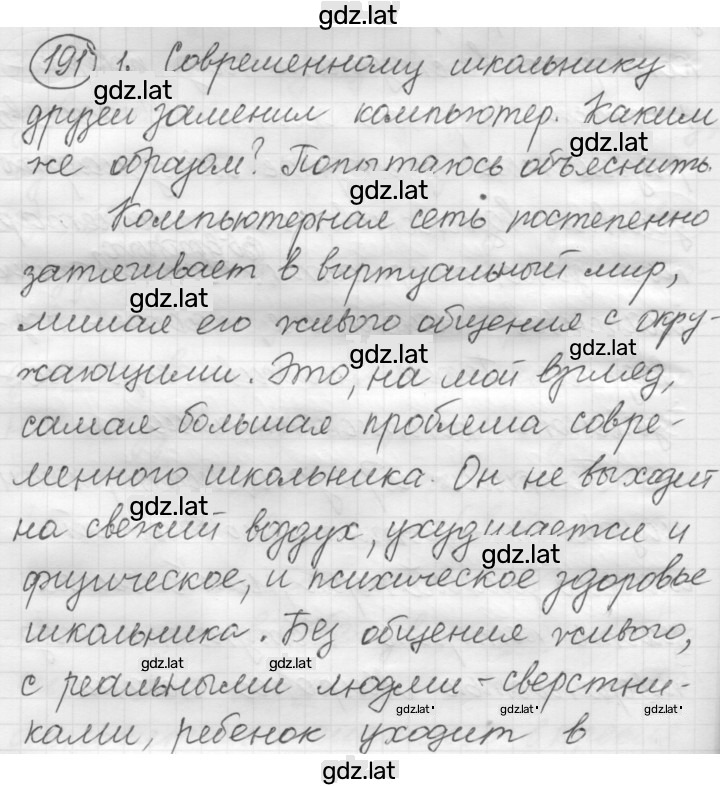 gdz.lat
191 1. Современному школьнику
gdz.lat
друзей заменил компьютер. Каким
gdz.lat
же образом? Попытаюсь объяснить.
gdz.lat
Компьютерная сеть постепенно
затягивает в виртуальный мир,
gdz.lat
лишая его живого общения с окру-
gdz.lat gdz.lat
жающими. Это, на мой взгляд,
самая большая проблема совре-
менного школьника. Он не выходит
gdz.lat
на свежий воздух, ухудшается и
gdz.lat
физическое, и психическое здоровье
школьника. Без общения живого,
gdz.lat gdz.lat
с реальными людьми - сверстни-
gdz.lat gdz.lat gdz.lat
ками, ребенок уходит в
gdz.lat